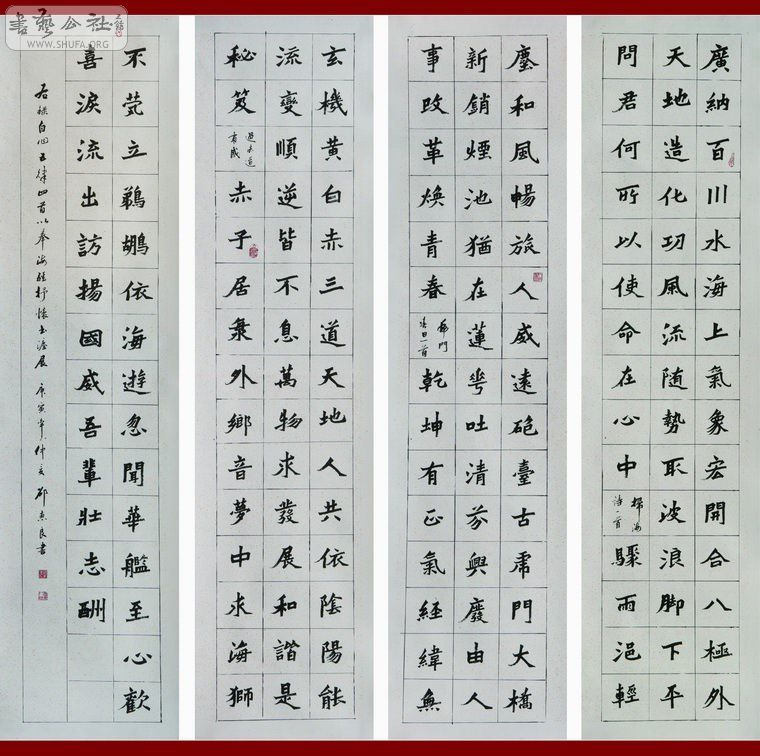 書藝公社
WWW.SHUFA.ORG
廣納百川水海上氣象宏開合八極外
天地造化功風流隨勢取波浪腳下平
問君何所以使命在心中驟雨浥輕
塵和風暢旅人威遠砲臺古虎門大橋
新銷煙池猶在蓮花吐清芬興廢由人
事改革煥青春虎門乾坤有正氣經緯無
玄機黃白赤三道天地人共依陰陽能
流變順逆皆不息萬物求發展和諧是
秘笈有感赤子居外鄉音夢中求海獅
不立鵜鶘依海遊忽聞華艦至心歡
喜淚流出訪揚國威吾輩壯志酬
右錄自作五律四首以奉海疆抒懷書法展庚寅年仲夏邵良書